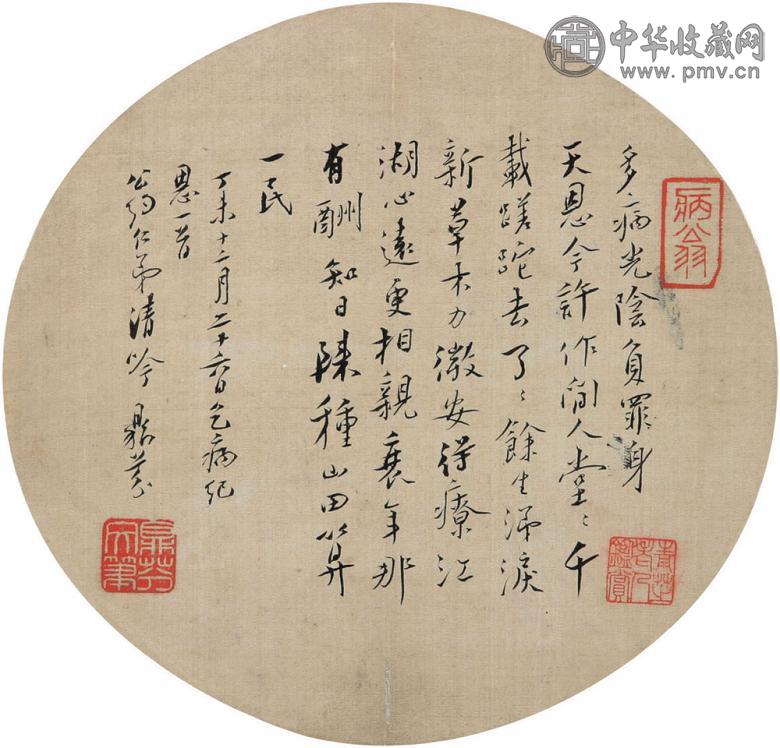 中华收藏网
www.pmv.cn
病翁
多病光陰負罪身
天恩今許作閒人堂〻千
載蹉跎去了〻餘生涕淚
新草木力微安得療江
湖心遠更相親衰年那
有酬知日種山田算
一民
丁未十二月二十六日乞病紀
恩一首
公約仁弟清吟 鼎芬